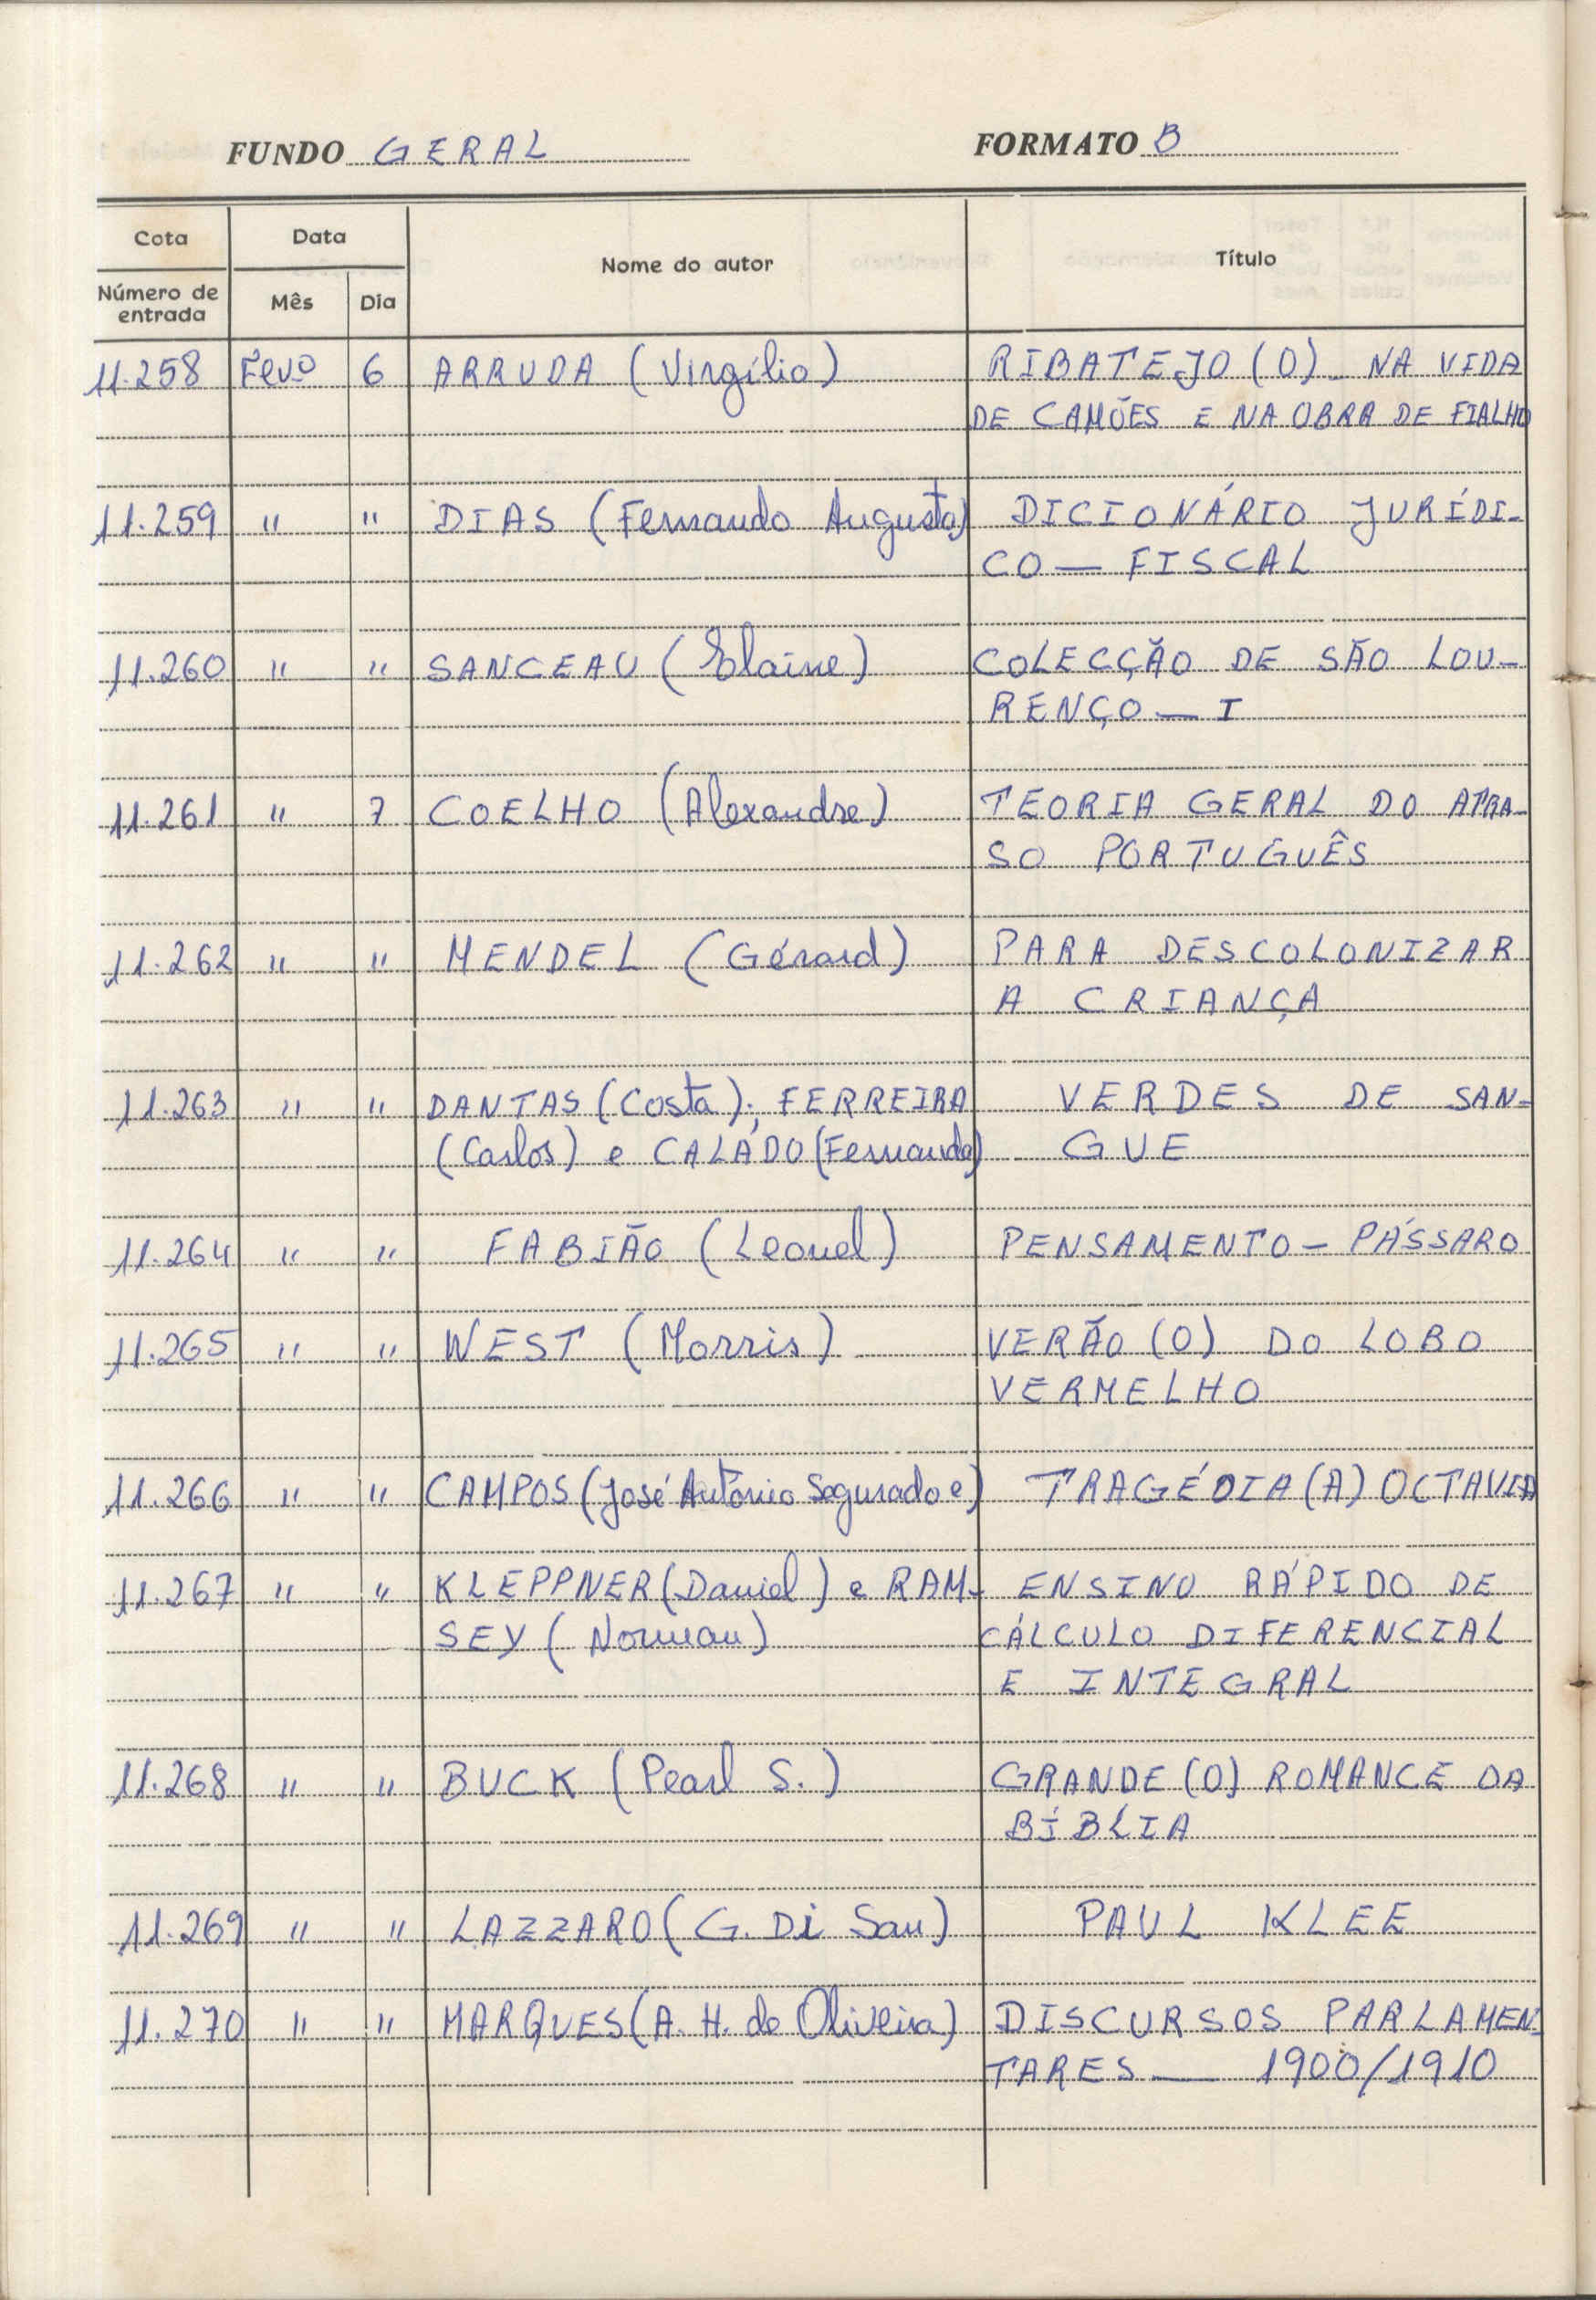 FUNDO GERAL FORMATO B
Cota Data Nome do autor Título
Número de entrada Mês Dia
11.258 Fevo 6 ARRUDA (Virgílio) RIBATEJO (O) NA VIDA
DE CAMÕES E NA OBRA DE FIALHO
11.259 " " DIAS (Fernando Augusto) DICIONÁRIO JURÍDI-
CO — FISCAL
11.260 " " SANCEAU (Elaine) COLECÇÃO DE SÃO LOU-
RENÇO — I
11.261 " 7 COELHO (Alexandre) TEORIA GERAL DO ATRA-
SO PORTUGUÊS
11.262 " " MENDEL (Gérard) PARA DESCOLONIZAR
A CRIANÇA
11.263 " " DANTAS (Costa); FERREIRA VERDES DE SAN-
(Carlos) e CALADO (Fernando) GUE
11.264 " " FABIÃO (Leonel) PENSAMENTO - PÁSSARO
11.265 " " WEST (Morris) VERÃO (O) DO LOBO
VERMELHO
11.266 " " CAMPOS (José António Segurado e) TRAGÉDIA (A) OCTAVIA
11.267 " " KLEPPNER (Daniel) e RAM- ENSINO RÁPIDO DE
SEY (Norman) CÁLCULO DIFERENCIAL
E INTEGRAL
11.268 " " BUCK (Pearl S.) GRANDE (O) ROMANCE DA
BÍBLIA
11.269 " " LAZZARO (G. Di San) PAUL KLEE
11.270 " " MARQUES (A. H. de Oliveira) DISCURSOS PARLAMEN-
TARES — 1900/1910